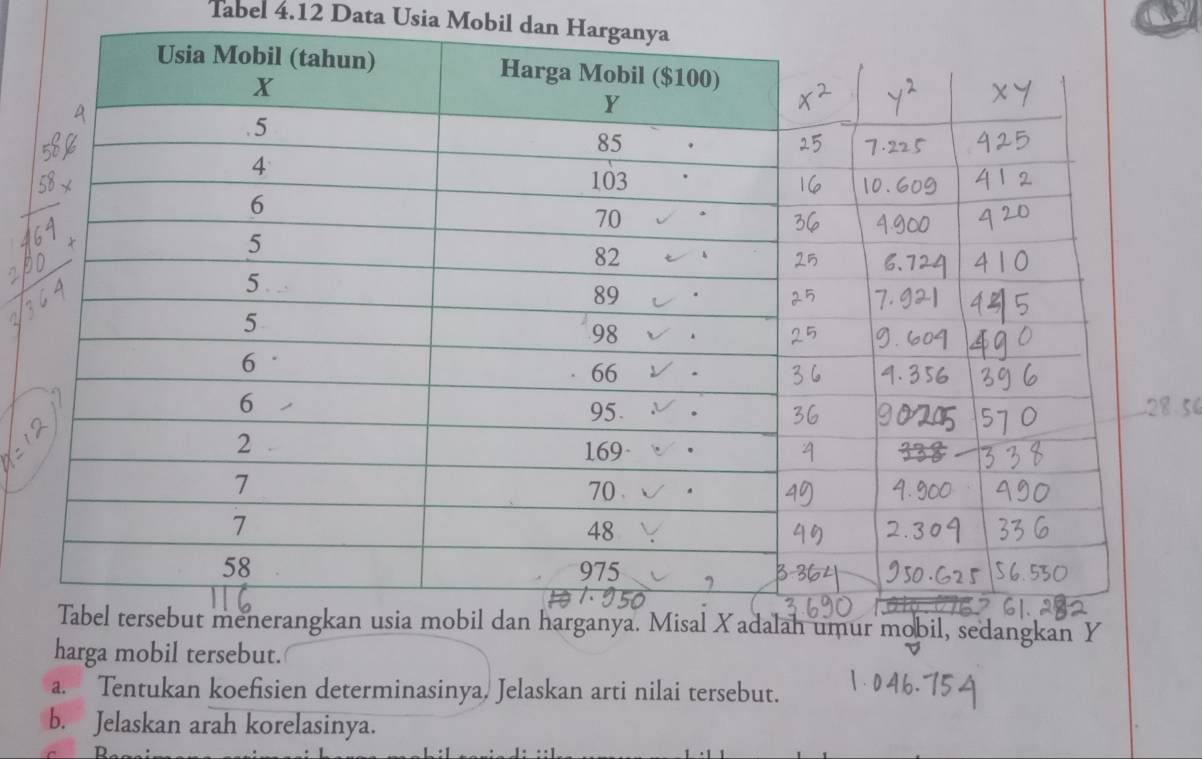 Tabel 4.12 Data Usia Mobil dan Harganya
Usia Mobil (tahun) Harga Mobil ($100)
X Y x² y² xy
5 85 25 7.225 425
4 103 16 10.609 412
6 70 36 4.900 420
5 82 25 6.724 410
5 89 25 7.921 445
5 98 25 9.604 490
6 66 36 4.356 396
6 95 36 9025 570
2 169 4 338 338
7 70 49 4.900 490
7 48 49 2.304 336
58 975 3.364 950.625 56.550
116 1.950 ? 3.690 ? 61.282
Tabel tersebut menerangkan usia mobil dan harganya. Misal X adalah umur mobil, sedangkan Y
harga mobil tersebut.
1.046.754
a. Tentukan koefisien determinasinya. Jelaskan arti nilai tersebut.
b. Jelaskan arah korelasinya.
58
58 x
464
290 +
3364
n=12 ?